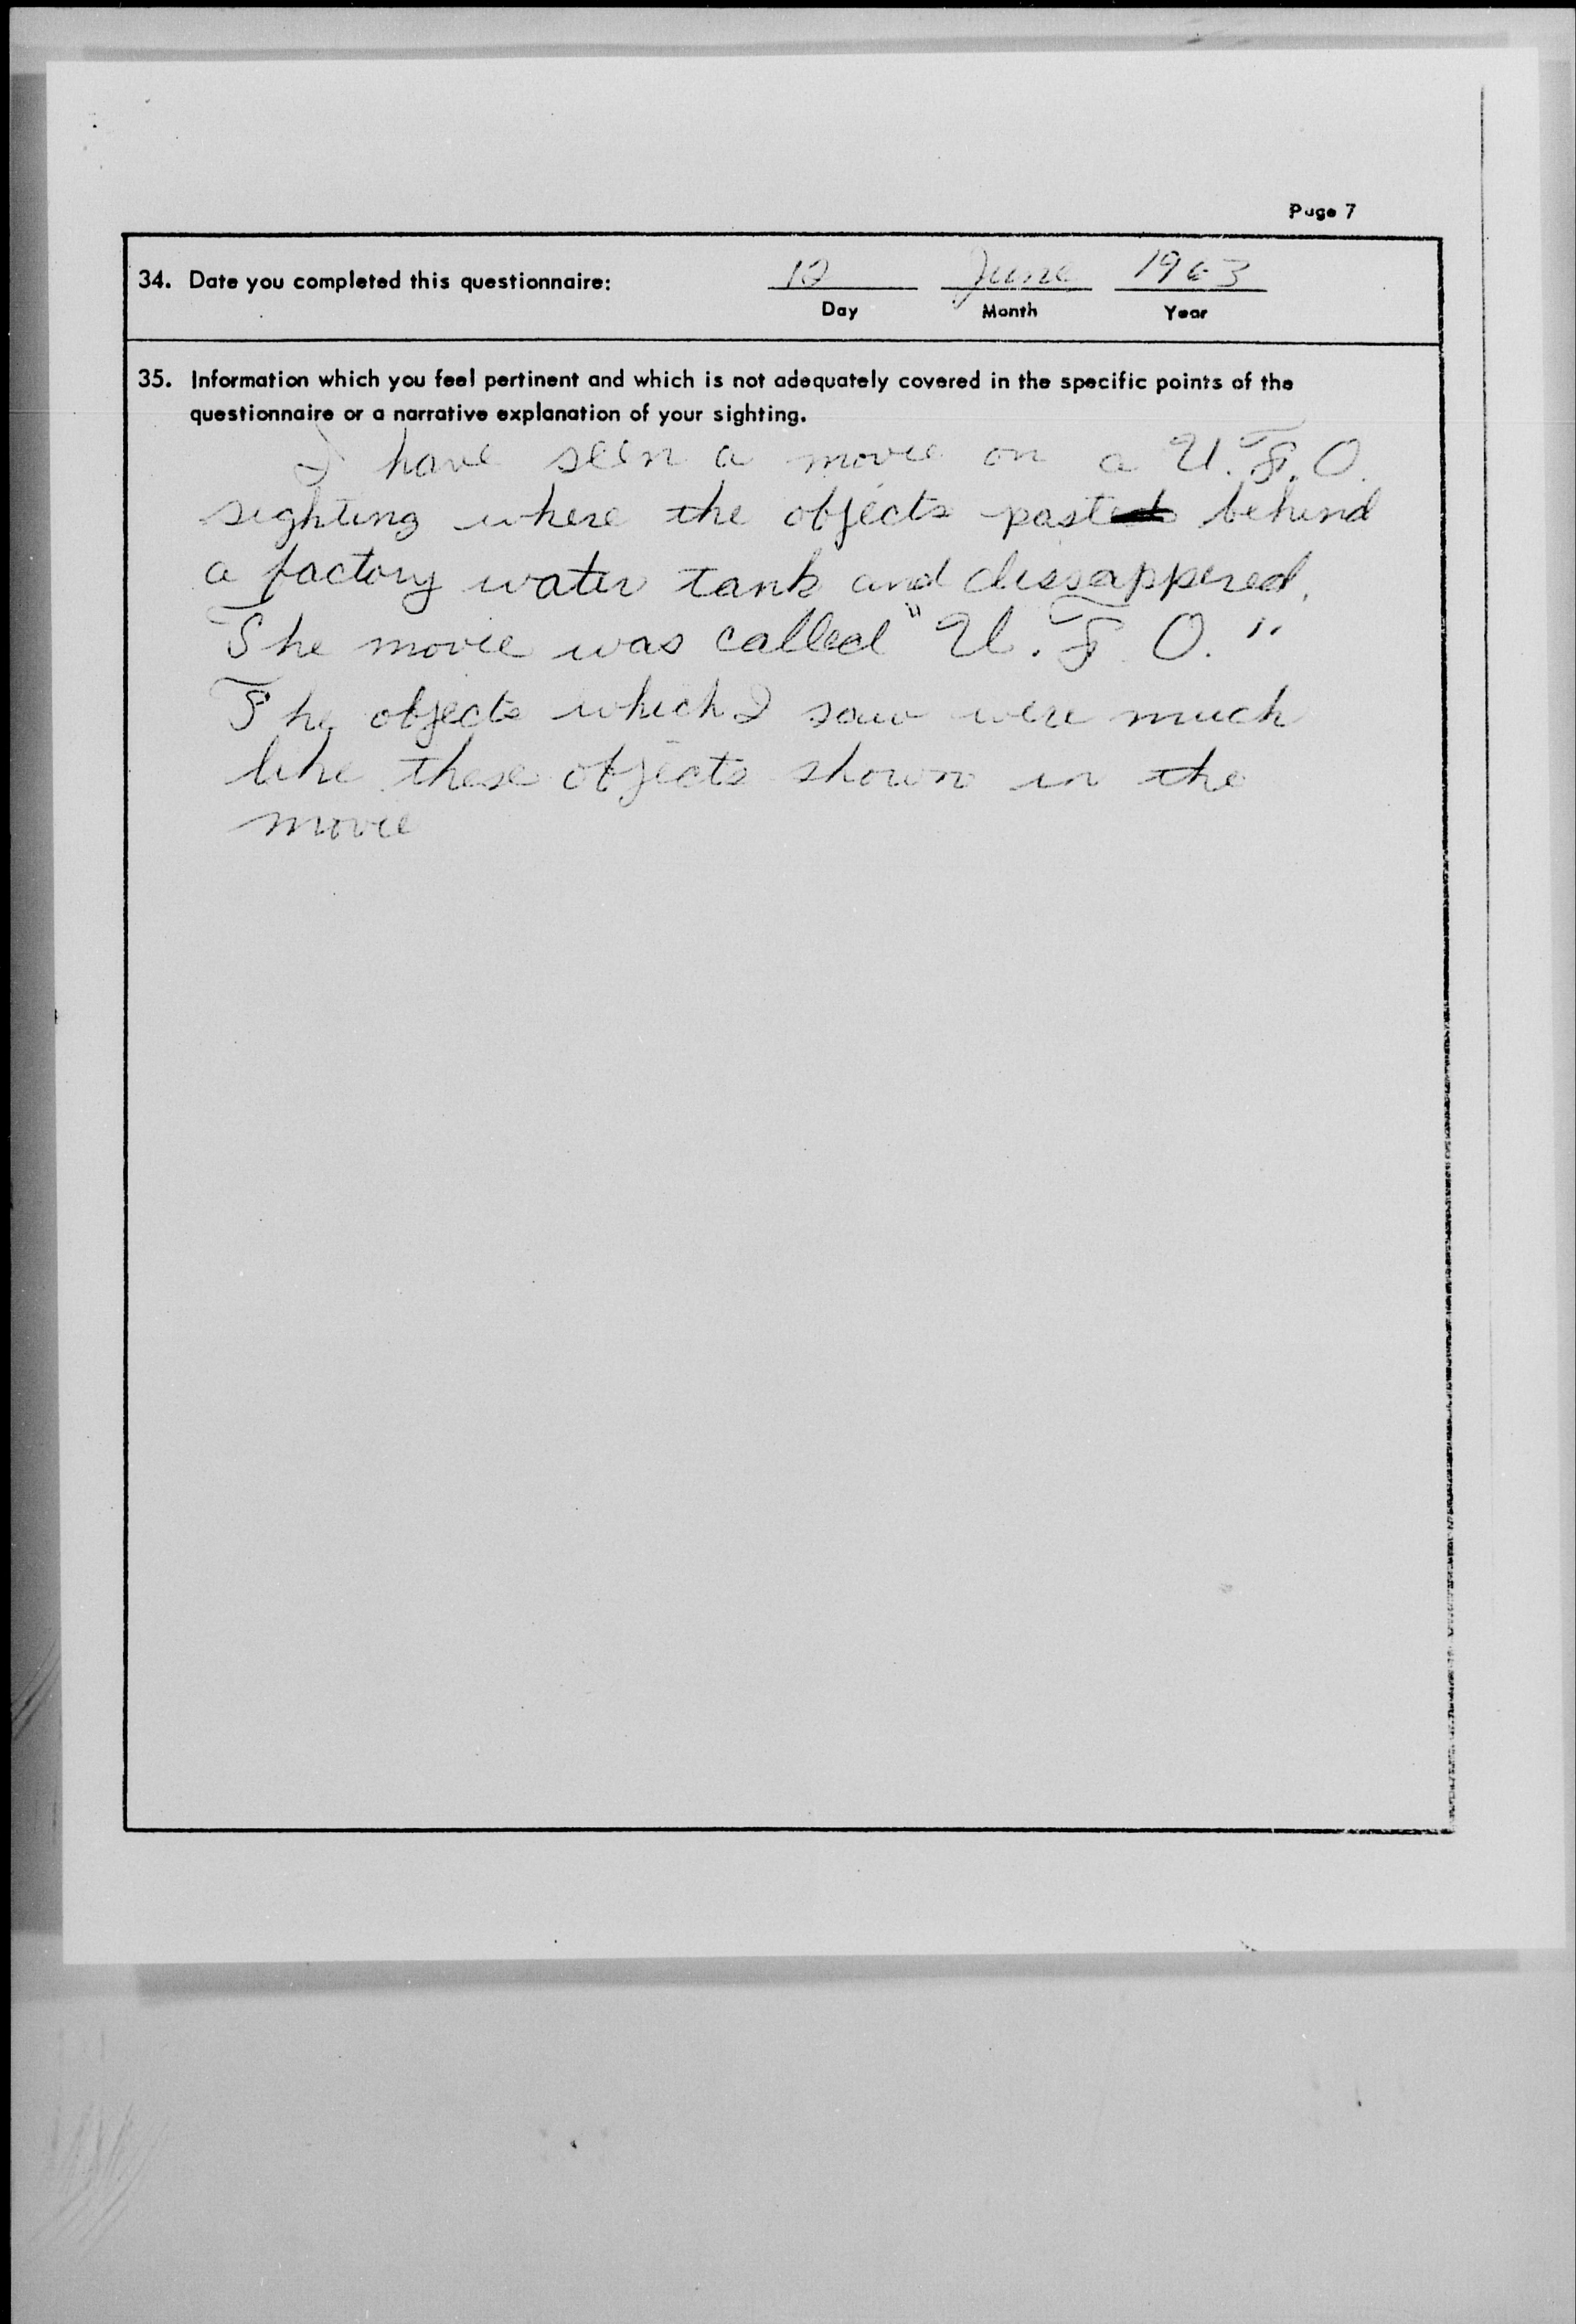 Page 7
34. Date you completed this questionnaire: 12 June 1963
Day Month Year
35. Information which you feel pertinent and which is not adequately covered in the specific points of the
questionnaire or a narrative explanation of your sighting.
I have seen a movie on a U.F.O.
sighting where the objects past behind
a factory water tank and dissappered.
The movie was called "U.F.O."
The objects which I saw were much
like these objects shown in the
movie